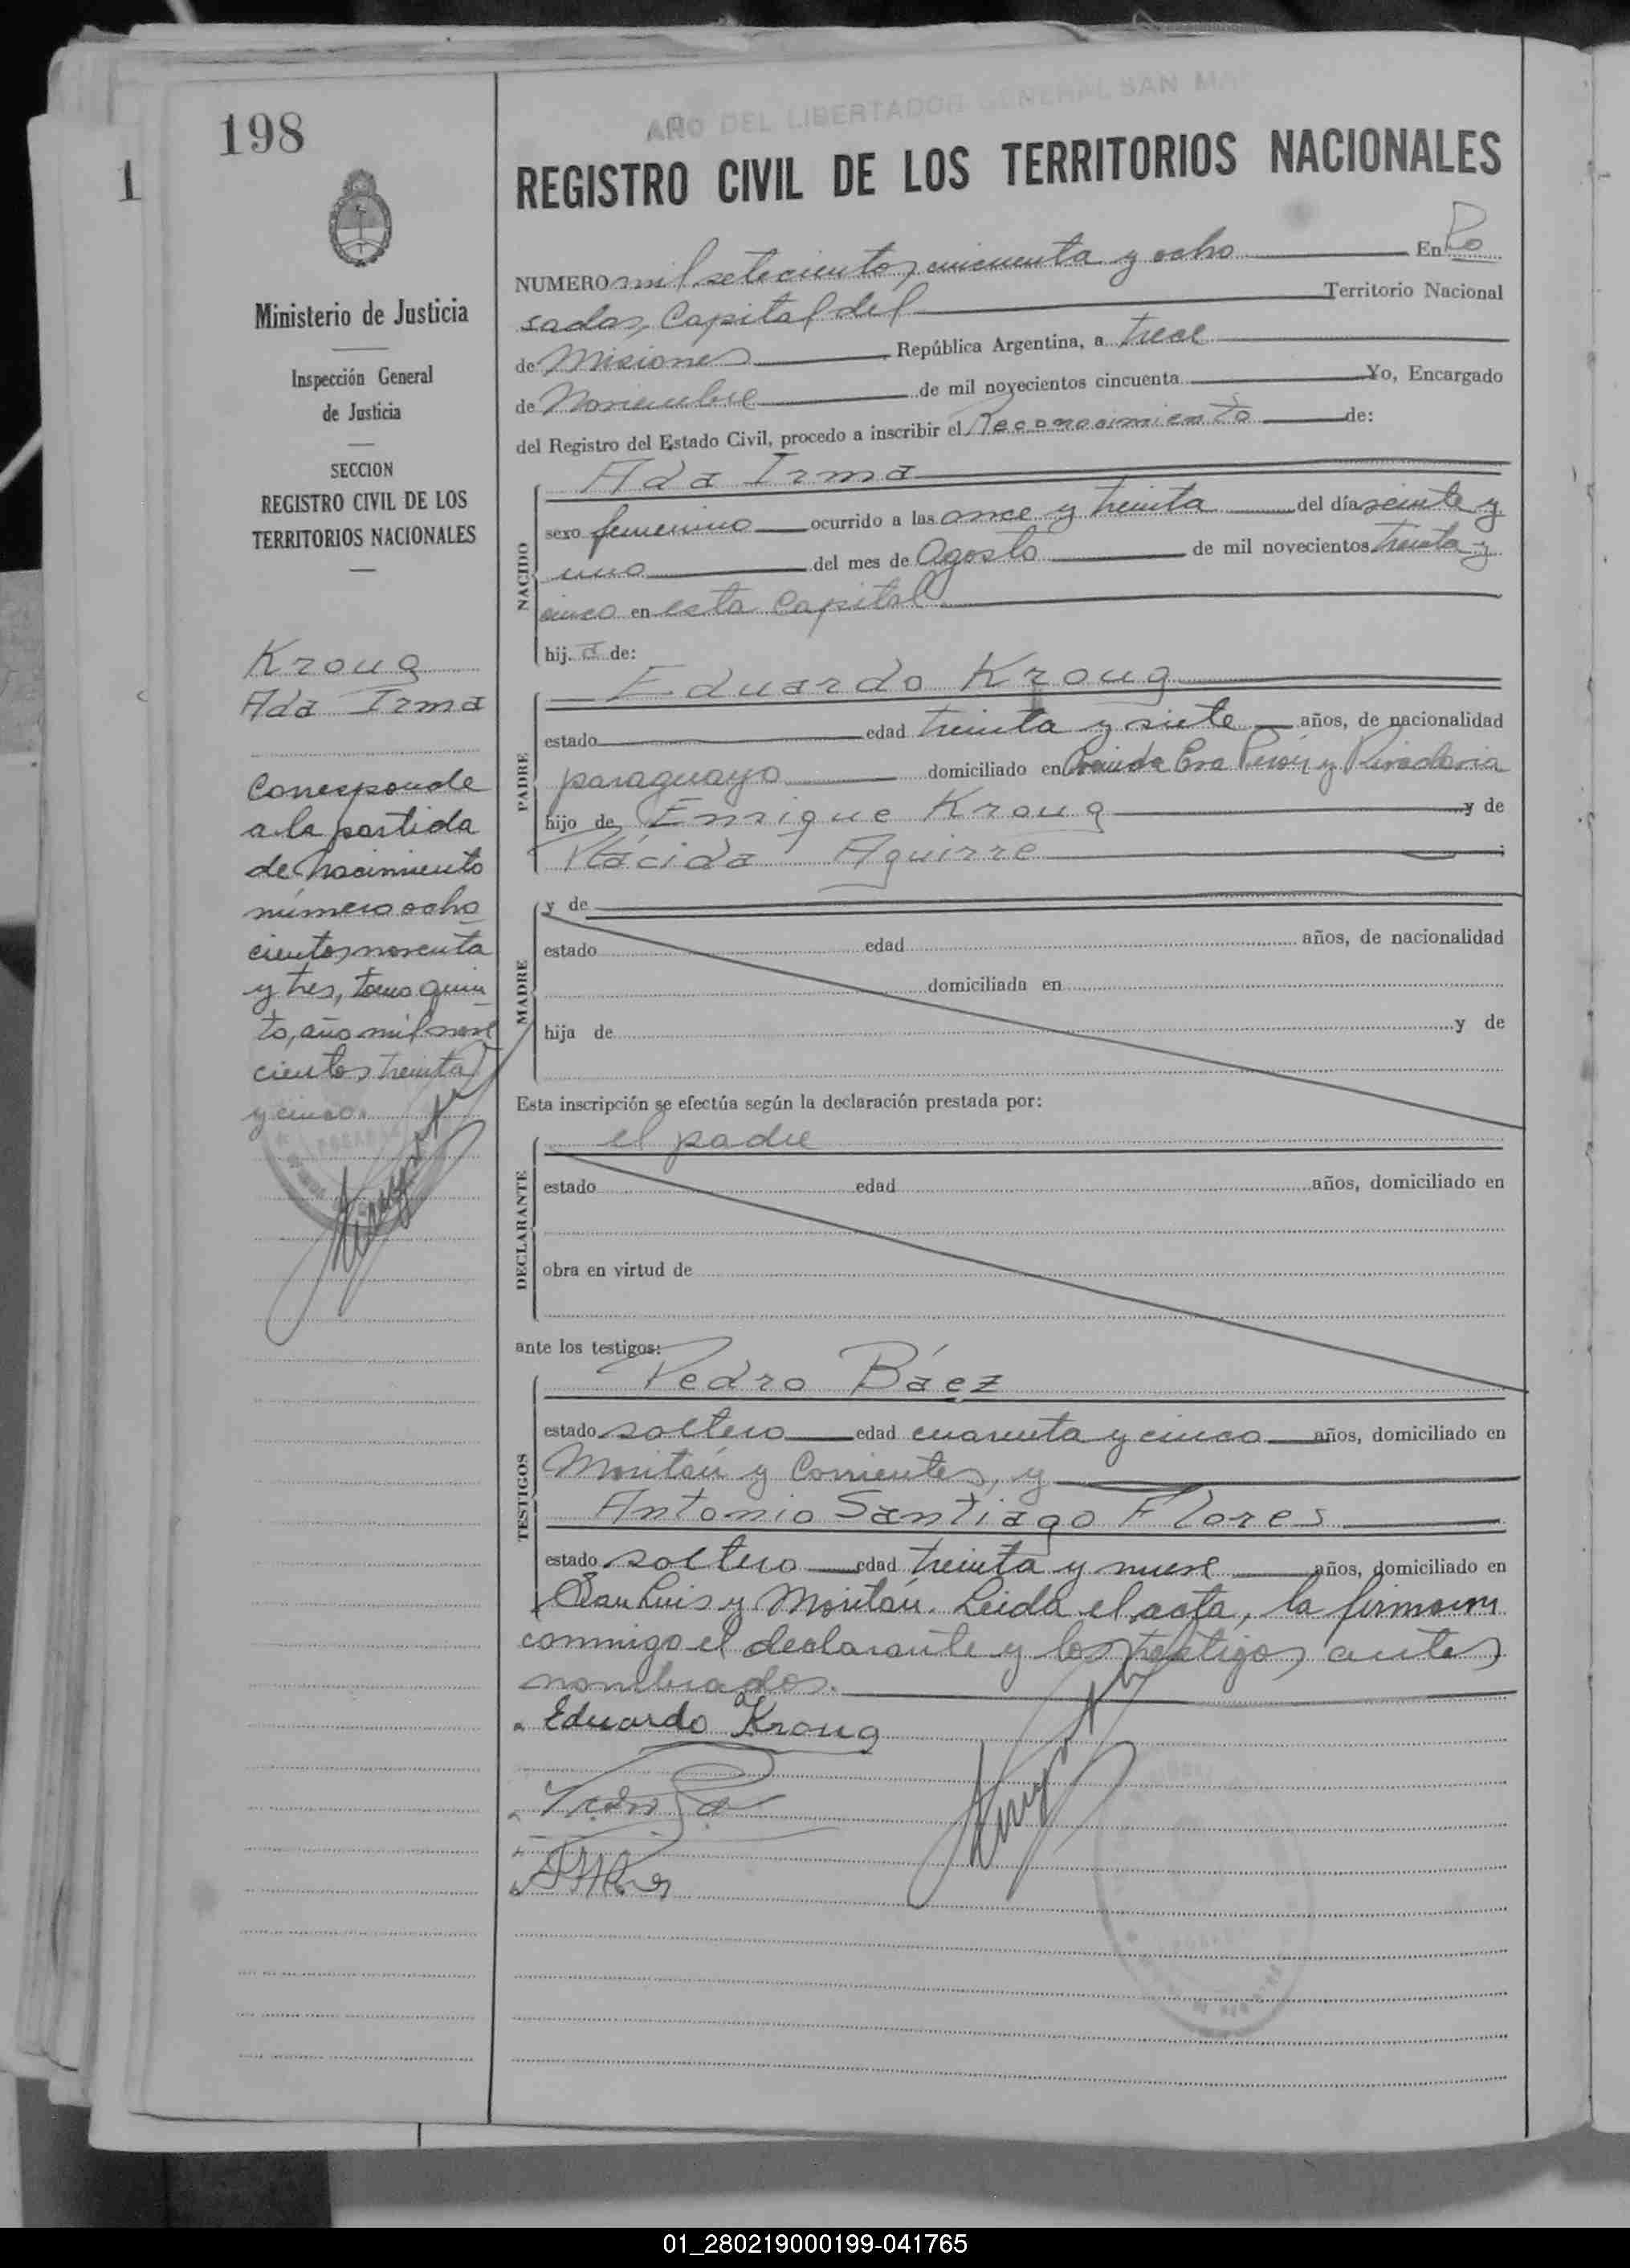 198
1
AÑO DEL LIBERTADOR GENERAL SAN MAR
REGISTRO CIVIL DE LOS TERRITORIOS NACIONALES
Ministerio de Justicia
Inspección General
de Justicia
SECCION
REGISTRO CIVIL DE LOS
TERRITORIOS NACIONALES
Kroug
Ada Irma
Corresponde
a la partida
de nacimiento
número ocho
cientos noventa
y tres, tomo quin
to, año mil nove
cientos treinta
y cinco.
NUMERO mil setecientos cincuenta y ocho En Po
sadas, Capital del Territorio Nacional
de Misiones República Argentina, a trece
de Noviembre de mil novecientos cincuenta Yo, Encargado
del Registro del Estado Civil, procedo a inscribir el Reconocimiento de:
NACIDO
Ada Irma
sexo femenino ocurrido a las once y treinta del día veinte y
uno del mes de Agosto de mil novecientos treinta y
cinco en esta Capital
hij.a de:
PADRE
Eduardo Kroug
estado edad treinta y siete años, de nacionalidad
paraguayo domiciliado en Avenida Eva Perón y Rivadavia
hijo de Enrique Kroug y de
Plácida Aguirre
MADRE
y de
estado edad años, de nacionalidad
domiciliada en
hija de y de
Esta inscripción se efectúa según la declaración prestada por:
DECLARANTE
el padre
estado edad años, domiciliado en
obra en virtud de
ante los testigos:
TESTIGOS
Pedro Báez
estado soltero edad cuarenta y cinco años, domiciliado en
Moritán y Corrientes, y
Antonio Santiago Flores
estado soltero edad treinta y nueve años, domiciliado en
San Luis y Moritán. Leida el acta, la firmaron
conmigo el declarante y los testigos antes
nombrados.
Eduardo Kroug
01_280219000199-041765